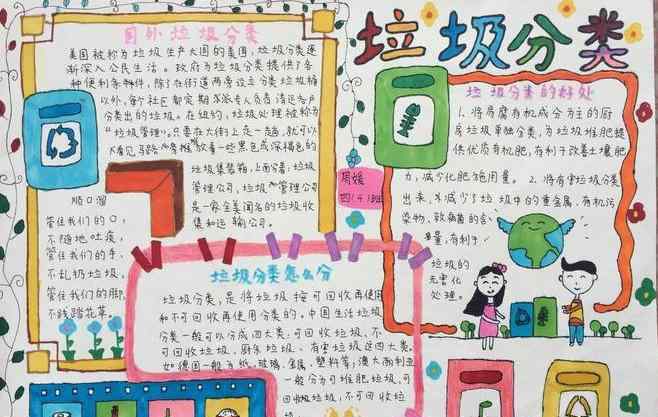 垃圾分类
国外垃圾分类
美国被称为垃圾生产大国的美国,垃圾分类逐
渐深入公民生活。政府为垃圾分类提供了各
种便利条件,除了在街道两旁设立分类垃圾桶
以外,每个社区都定期派专人负责清运各户
分类出的垃圾。在纽约,垃圾处理被称为
"垃圾管理"。只要在大街上走一走,就可以
看见马路 放着一些黑色或深褐色的
垃圾集装箱,上面分着:垃圾
管理公司,垃圾 管理公司
是一家全美闻名的垃圾收
集和运输公司。
顺口溜
管住我们的口,
不随地吐痰,
管住我们的手,
不乱扔垃圾,
管住我们的脚,
不践踏花草。
周媛
四(4)班
垃圾分类的好处
1、将易腐有机成分为主的厨
房垃圾单独分类,为垃圾堆肥提
供优质有机肥,有利于改善土壤肥
力,减少化肥施用量。2、将有害垃圾分类
出来,减少了垃圾中的重金属,有机污
染物,致病菌的含
量,有利于
垃圾的
无害化
处理。
垃圾分类怎么分
垃圾分类,是将垃圾按可回收再使用
和不可回收再使用分类的。中国生活垃圾
分类一般可以分成四大类:可回收垃圾、不
可回收垃圾、厨余垃圾、有害垃圾这四大类。
如德国一般为纸,玻璃,金属,塑料等;澳大利亚
一般分为可堆肥垃圾,可
回收垃圾,不可回收垃